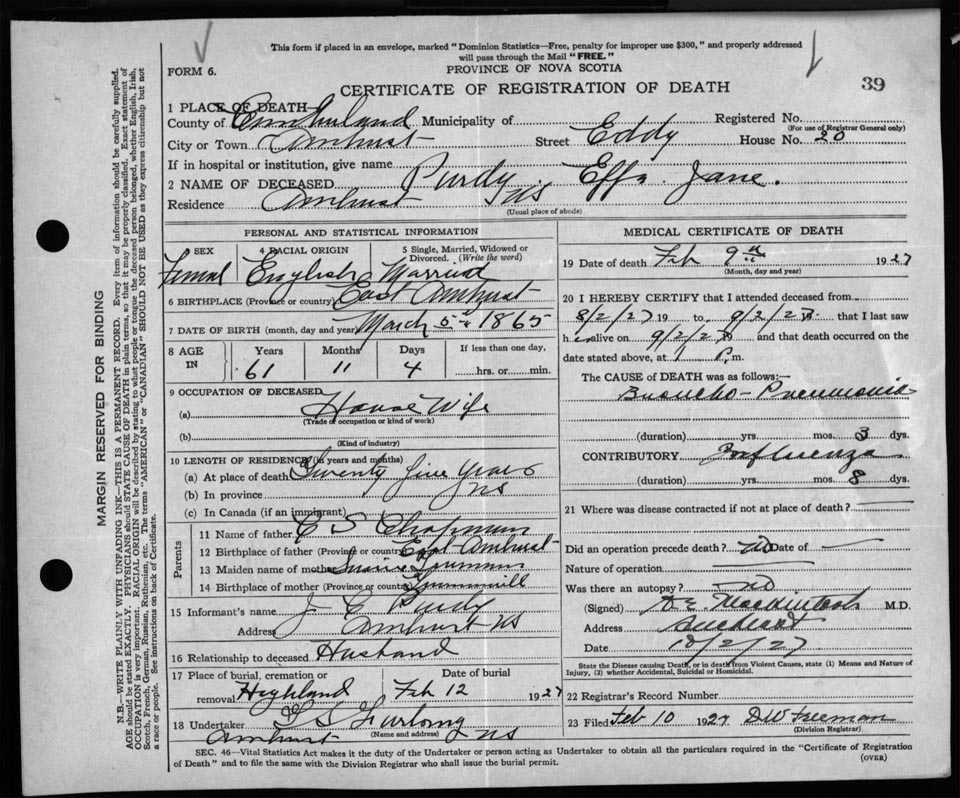 This form if placed in an envelope, marked "Dominion Statistics—Free, penalty for improper use $300," and properly addressed
will pass through the Mail "FREE."
FORM 6.
PROVINCE OF NOVA SCOTIA
CERTIFICATE OF REGISTRATION OF DEATH
39
1 PLACE OF DEATH
County of Cumberland Municipality of Registered No.
(For use of Registrar General only)
City or Town Amherst Street Eddy House No. 20
If in hospital or institution, give name
2 NAME OF DECEASED Purdy Effa Jane.
Residence Amherst NS
(Usual place of abode)
PERSONAL AND STATISTICAL INFORMATION
3 SEX 4 RACIAL ORIGIN 5 Single, Married, Widowed or Divorced. (Write the word)
Femal English Married
6 BIRTHPLACE (Province or country) East Amherst
7 DATE OF BIRTH (month, day and year) March 5th 1865
8 AGE IN Years Months Days If less than one day,
61 11 4 hrs. or min.
9 OCCUPATION OF DECEASED
(a) House Wife
(Trade or occupation or kind of work)
(b)
(Kind of industry)
10 LENGTH OF RESIDENCE (in years and months)
(a) At place of death Twenty five years
(b) In province NS
(c) In Canada (if an immigrant)
Parents
11 Name of father C S Chapman
12 Birthplace of father (Province or country) East Amherst
13 Maiden name of mother
14 Birthplace of mother (Province or country)
15 Informant's name J E Purdy
Address Amherst NS
16 Relationship to deceased Husband
17 Place of burial, cremation or removal Highland Date of burial Feb 12 1927
18 Undertaker Furlong
(Name and address)
Amherst NS
MEDICAL CERTIFICATE OF DEATH
19 Date of death Feb 9th 1927
(Month, day and year)
20 I HEREBY CERTIFY that I attended deceased from
8/2/27 19 to 9/2/27 19 that I last saw
h er alive on 9/2/27 19 and that death occurred on the
date stated above, at 1 P. m.
The CAUSE of DEATH was as follows:—
Broncho-Pneumonia
(duration) yrs. mos. 3 dys.
CONTRIBUTORY Influenza
(duration) yrs. mos. 8 dys.
21 Where was disease contracted if not at place of death?
Did an operation precede death? no Date of
Nature of operation
Was there an autopsy? no
(Signed) Mackintosh M.D.
Address Amherst
Date 10/2/27
State the Disease causing Death, or in death from Violent Causes, state (1) Means and Nature of
Injury, (2) whether Accidental, Suicidal or Homicidal.
22 Registrar's Record Number
23 Filed Feb 10 1927 DW Freeman
(Division Registrar)
SEC. 46—Vital Statistics Act makes it the duty of the Undertaker or person acting as Undertaker to obtain all the particulars required in the "Certificate of Registration
of Death" and to file the same with the Division Registrar who shall issue the burial permit.
(OVER)
MARGIN RESERVED FOR BINDING
N.B.—WRITE PLAINLY WITH UNFADING INK—THIS IS A PERMANENT RECORD. Every item of information should be carefully supplied.
AGE should be stated EXACTLY. PHYSICIANS should STATE CAUSE OF DEATH in plain terms, so that it may be properly classified. Exact statement of
OCCUPATION is very important. RACIAL ORIGIN will be described by stating to what people or tongue the deceased person belonged, whether English, Irish,
Scotch, French, German, Russian, Ruthenian, etc. The terms "AMERICAN" or "CANADIAN" SHOULD NOT BE USED as they express citizenship but not
a race or people. See instructions on back of Certificate.